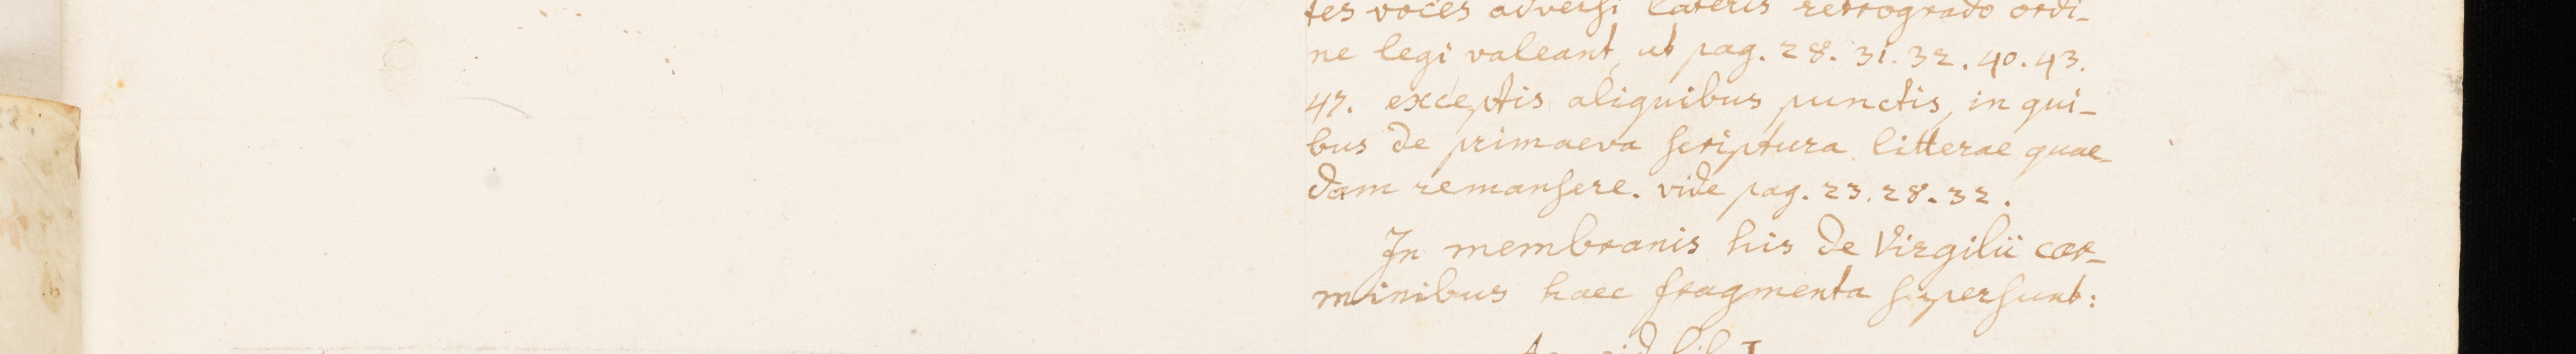 tes voces adversi lateris retrogrado ordi-
ne legi valeant, ut pag. 28. 31. 32. 40. 43.
47. exceptis aliquibus punctis, in qui-
bus de primaeva scriptura litterae quae-
dam remansere. vide pag. 23. 28. 32.
In membranis his de Virgilii car-
minibus haec fragmenta supersunt:
Aeneid. lib. I